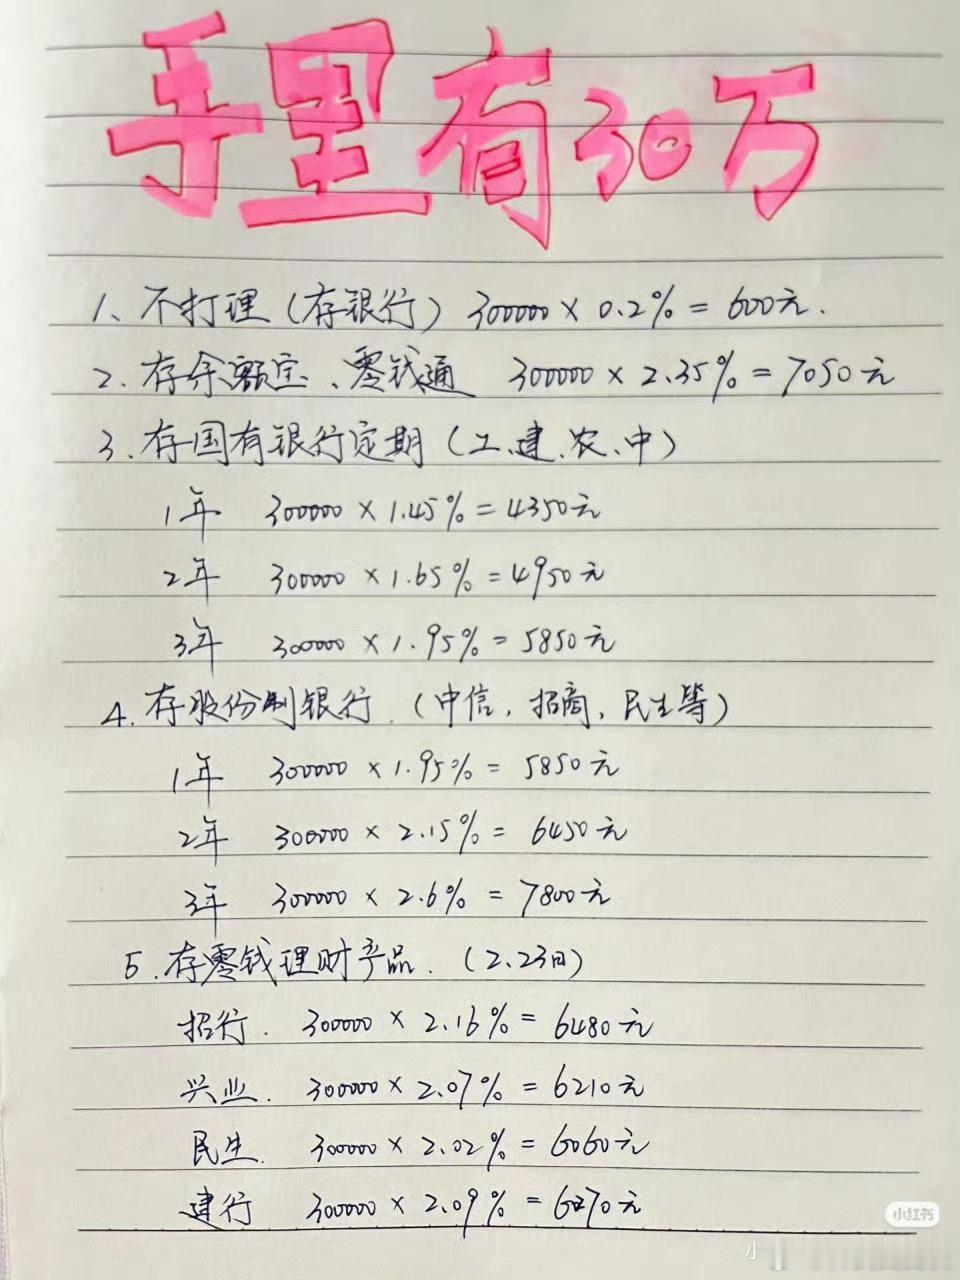 手里有30万
1、不打理（存银行）300000×0.2%=600元.
2.存余额宝、零钱通 300000×2.35%=7050元
3.存国有银行定期（工、建、农、中）
1年 300000×1.45%=4350元
2年 300000×1.65%=4950元
3年 300000×1.95%=5850元
4.存股份制银行.（中信，招商，民生等）
1年 300000×1.95%=5850元
2年 300000×2.15%=6450元
3年 300000×2.6%=7800元
5.存零钱理财产品.（2.23日）
招行. 300000×2.16%=6480元
兴业. 300000×2.07%=6210元
民生. 300000×2.02%=6060元
建行 300000×2.09%=6270元
小红书